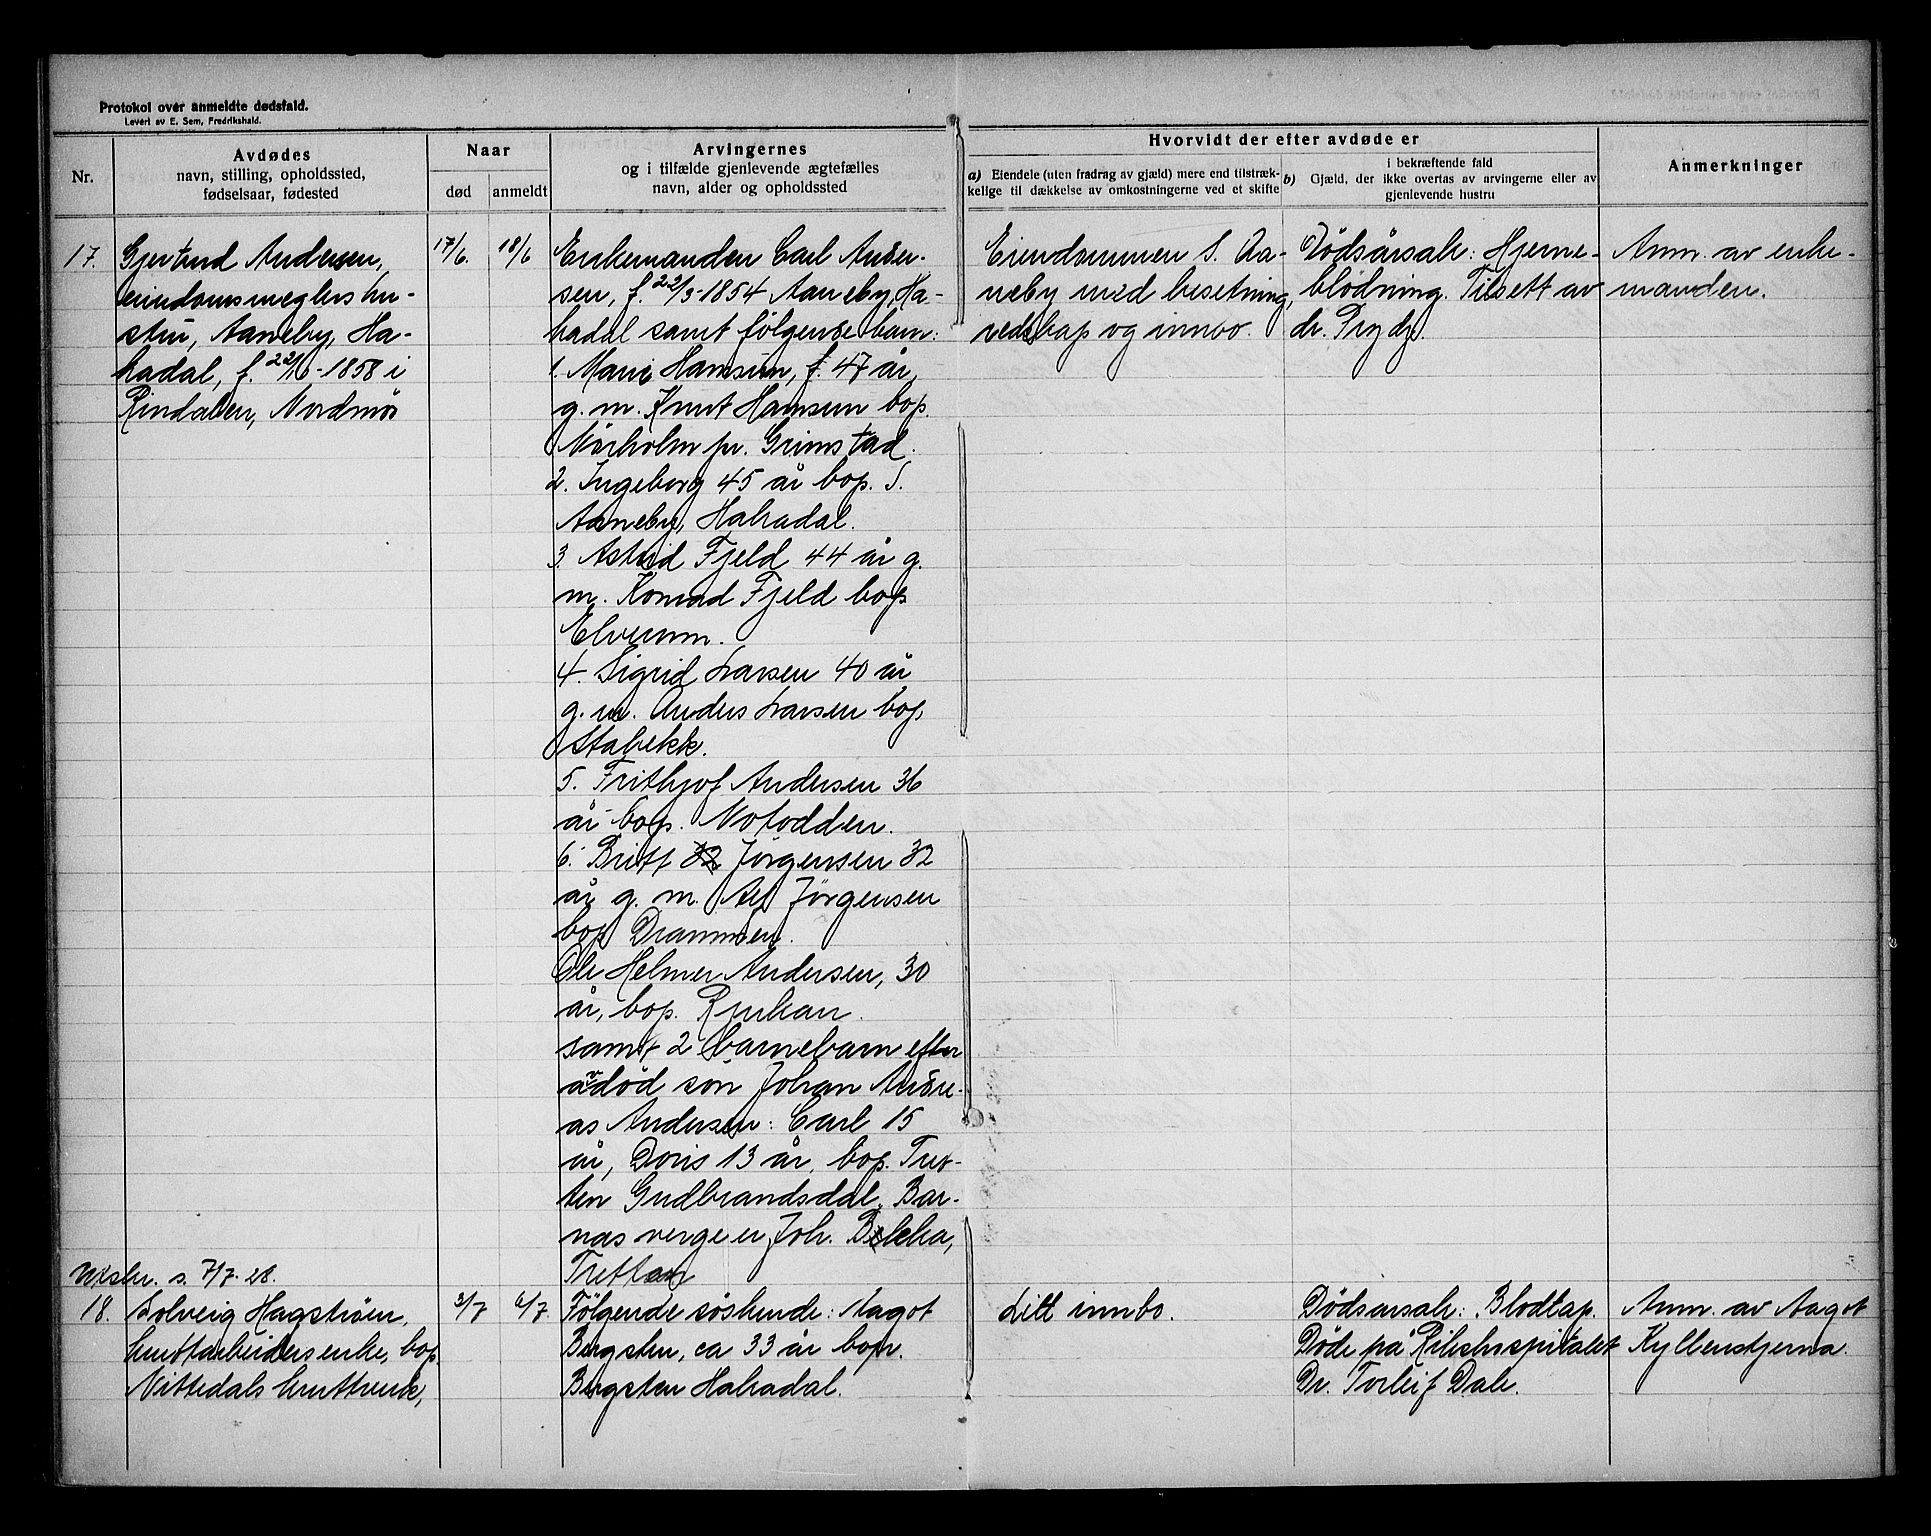 Protokol over anmeldte dødsfald.
Levert av E. Sem, Fredrikshald.
Nr.
Avdødes
navn, stilling, opholdssted,
fødselsaar, fødested
Naar
død
anmeldt
Arvingernes
og i tilfælde gjenlevende ægtefælles
navn, alder og opholdssted
Hvorvidt der efter avdøde er
a) Eiendele (uten fradrag av gjæld) mere end tilstræk-
kelige til dækkelse av omkostningerne ved et skifte
i bekræftende fald
b) Gjæld, der ikke overtas av arvingerne eller av
gjenlevende hustru
Anmerkninger
17.
Gjertrud Andersen,
eiendomsmeglers hu-
stru, Aaneby, Ha-
kadal, f. 22/6-1858 i
Rindalen, Nordmør
17/6.
18/6
Enkemanden Carl Ander-
sen, f. 22/3-1854 Aaneby, Ha-
kadal samt følgende barn:
1. Marie Hamsun, f. 47 år,
g. m. Knut Hamsun bop.
Nörholm pr. Grimstad.
2. Ingeborg 45 år bop. S.
Aaneby, Hakadal.
3. Astrid Fjeld 44 år g.
m. Konrad Fjeld bop
Elverum.
4. Sigrid Larsen 40 år
g. m. Anders Larsen bop.
Stabekk.
5. Frithjof Andersen 36
år bop. Notodden.
6. Britt 32 Jörgensen 32
år g. m. Alf Jörgensen
bop Drammen.
Ole Helmer Andersen, 30
år, bop. Rjukan.
samt 2 barnebarn efter
avdöd sön Johan Andre-
as Andersen: Carl 15
år, Doris 13 år, bop. Tret-
ten Gudbrandsdal. Bar-
nas verge er Joh. Bekka,
Tretten
Eiendommen S. Aa-
neby med besetning,
redskap og innbo.
Dödsårsak: Hjerne-
blödning. Tilsett av
dr. Prydz.
Anm. av enke-
manden.
Utskr. s. 7/7. 28.
18.
Solveig Hagström,
kruttarbeidersenke, bop.
Nittedals kruttverk,
3/7
6/7.
Fölgende söskende: Aagot
Bergsten, ca 33 år bop.
Bergsten Hakadal.
Litt innbo.
Dödsarsak: Blodtap.
Döde på Rikshospitalet
Dr. Torleif Dale.
Anm. av Aagot
Kyllenstjerna.